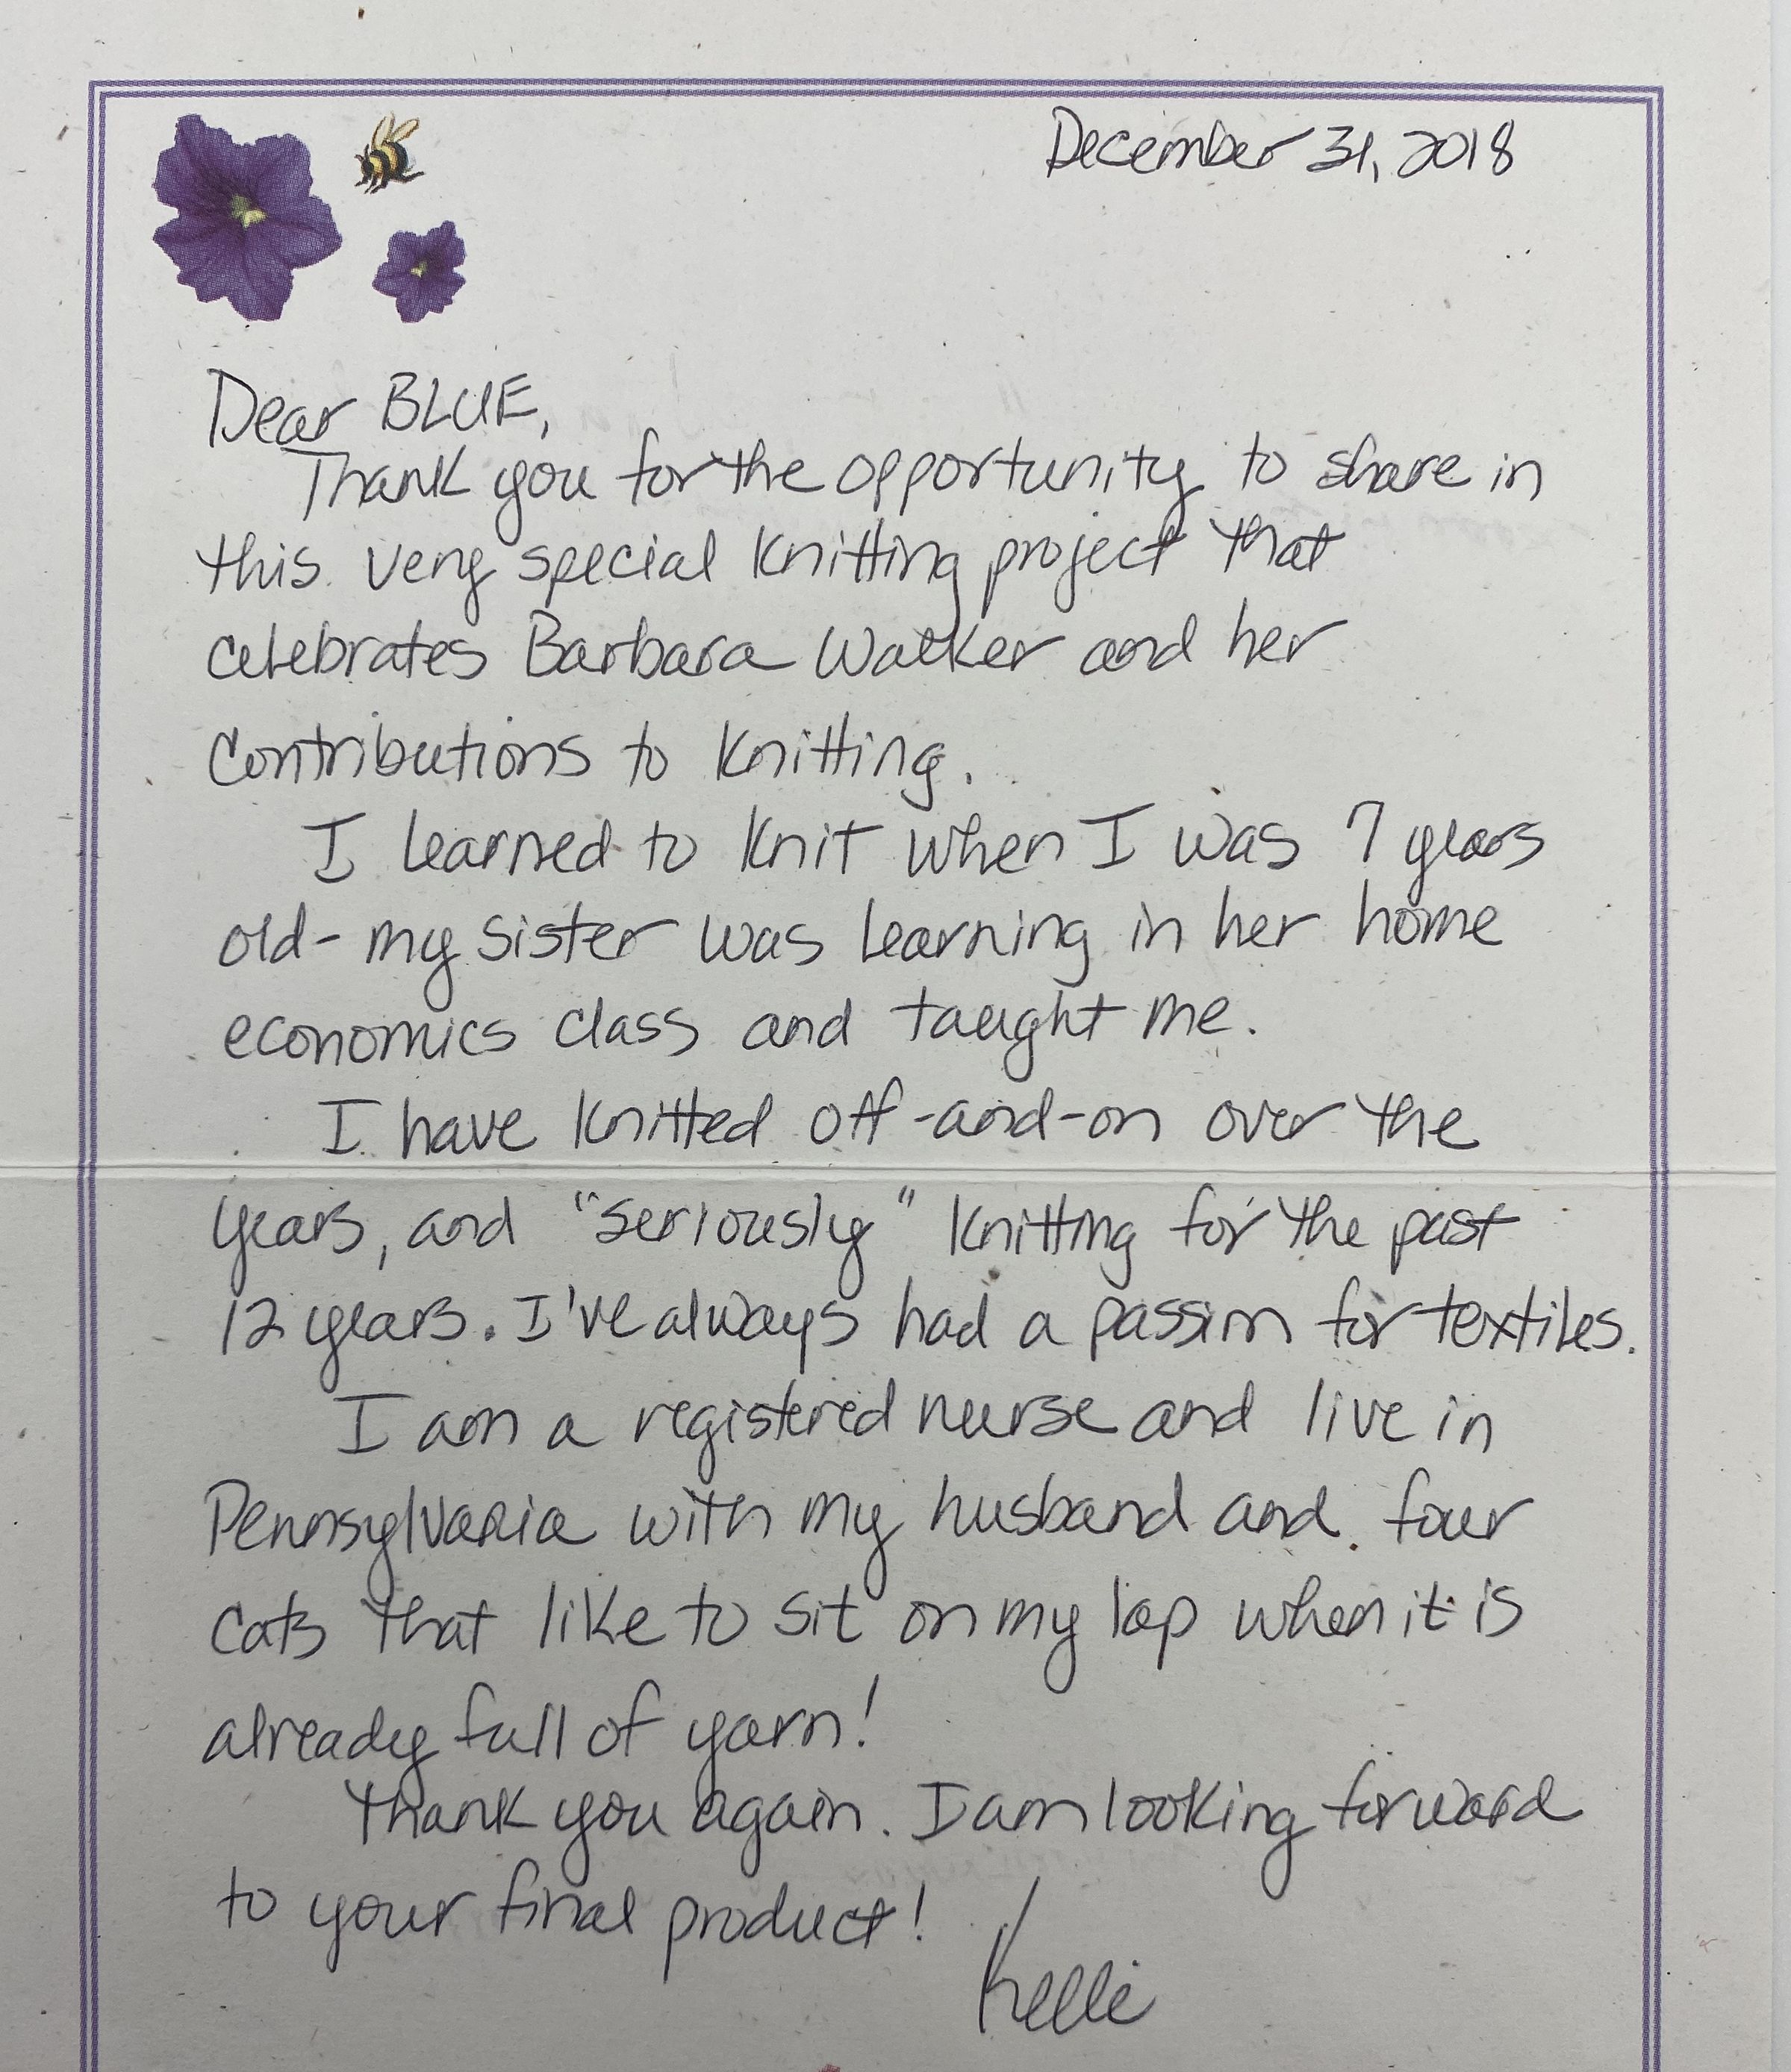 December 31, 2018
Dear BLUE,
Thank you for the opportunity to share in
this very special knitting project that
celebrates Barbara Walker and her
contributions to knitting.
I learned to knit when I was 7 years
old - my sister was learning in her home
economics class and taught me.
I have knitted off-and-on over the
years, and "seriously" knitting for the past
12 years. I've always had a passion for textiles.
I am a registered nurse and live in
Pennsylvania with my husband and four
cats that like to sit on my lap when it is
already full of yarn!
Thank you again. I am looking forward
to your final product!
Kelli